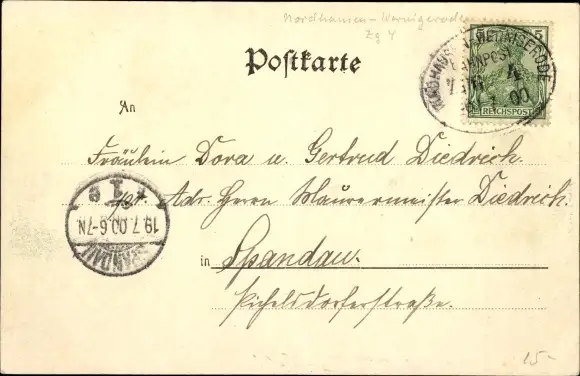 Nordhausen-Wernigerode
Zg 4
Postkarte
5 5
REICHSPOST
NORDHAUSEN-WERNIGERODE
BAHNPOST
ZUG 4
7 00
An
Fräulein Dora u. Gertrud Diedrich.
Adr. Herrn Maurermeister Diedrich
in Spandau.
Pichelsdorferstraße.
SPANDAU
19.7.00.6-7N
1 e
15-